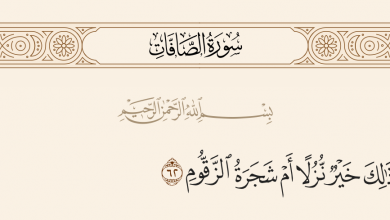 سُورَةُ الصَّافَّاتِ
بِسْمِ اللَّهِ الرَّحْمَٰنِ الرَّحِيمِ
أَذَٰلِكَ خَيْرٌ نُّزُلًا أَمْ شَجَرَةُ الزَّقُّومِ ٦٢